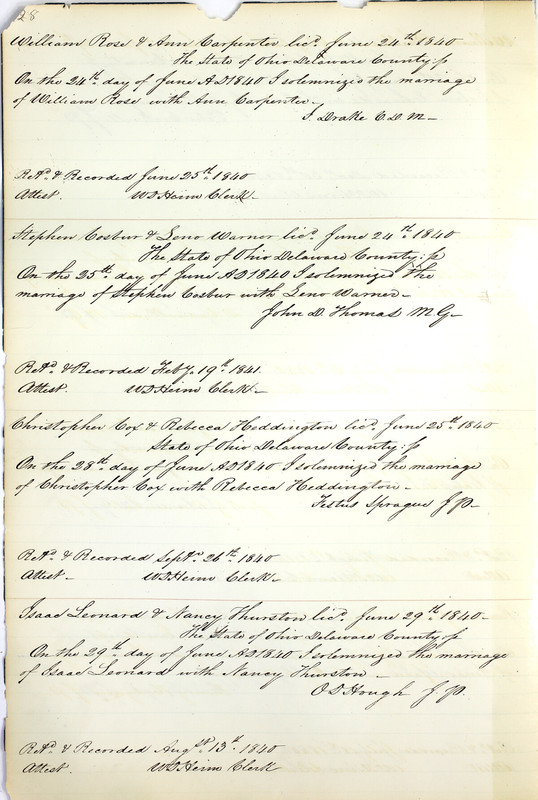 28
William Rose & Ann Carpenter licd. June 24th. 1840
The State of Ohio Delaware County: ss
On the 24th. day of June AD 1840 I solemnized the marriage
of William Rose with Ann Carpenter -
S. Drake C.D.M -
Retd. & Recorded June 25th. 1840
Attest. W D Heim Clerk -
Stephen Cosbur & Zeno Warner licd. June 24th. 1840
The State of Ohio Delaware County: ss
On the 25th. day of June AD 1840 I solemnized the
marriage of Stephen Cosbur with Zeno Warner -
John D. Thomas M G -
Retd. & Recorded Feby. 19th. 1841.
Attest. W D Heim Clerk -
Christopher Cox & Rebecca Heddington licd. June 25th. 1840
State of Ohio Delaware County: ss
On the 28th. day of June AD 1840 I solemnized the marriage
of Christopher Cox with Rebecca Heddington -
Festus Sprague J P. -
Retd. & Recorded Septr. 26th. 1840
Attest - W D Heim Clerk -
Isaac Leonard & Nancy Thurston licd. June 29th. 1840 -
The State of Ohio Delaware County ss
On the 29th. day of June AD 1840 I solemnized the marriage
of Isaac Leonard with Nancy Thurston -
O D Hough J P.
Retd. & Recorded Augst. 13th. 1840
Attest. W D Heim Clerk